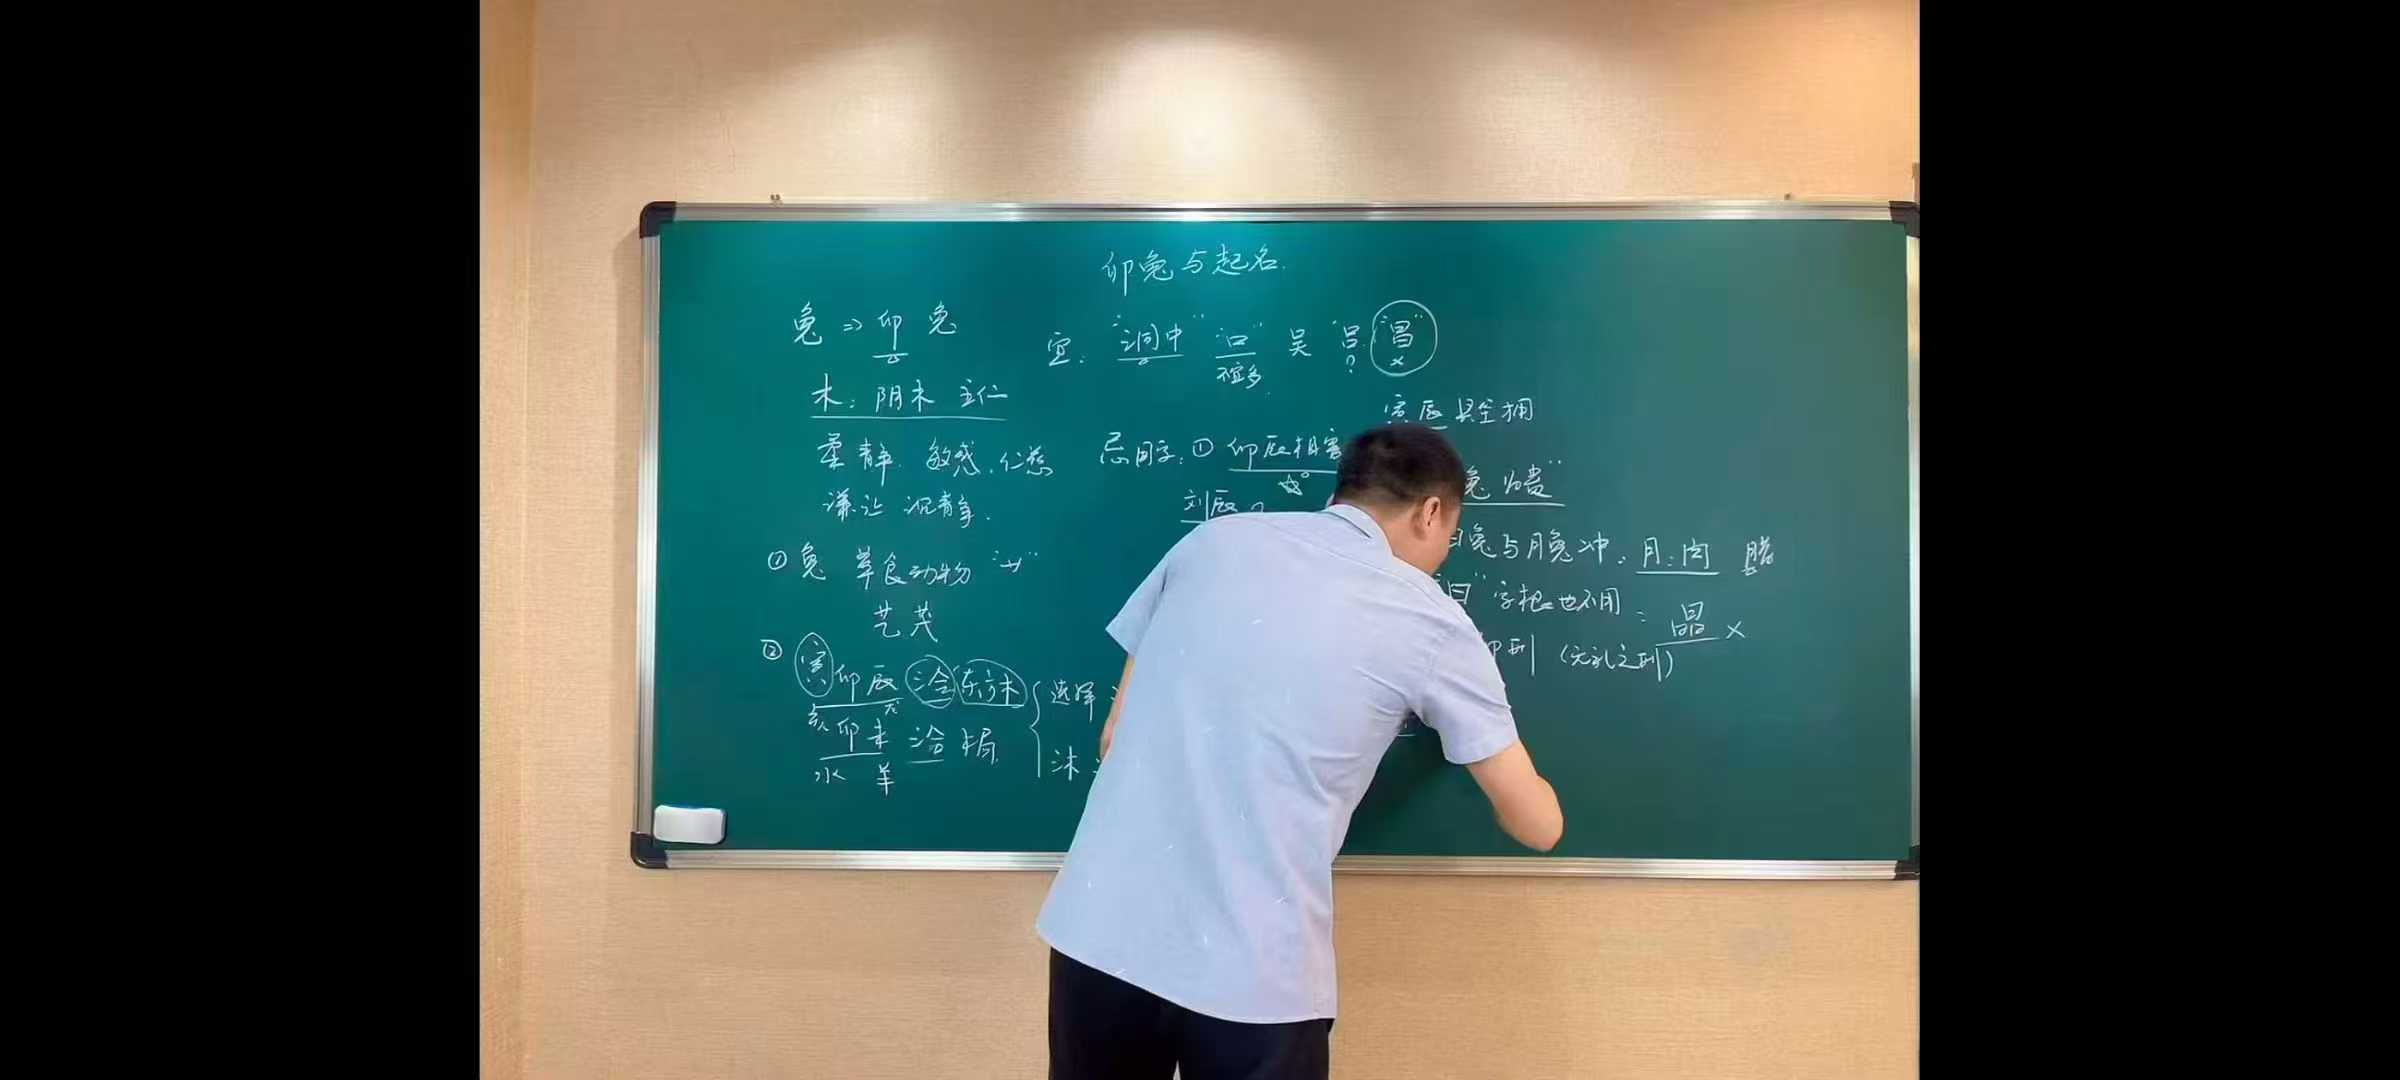 卯兔与起名.
兔⇒卯 兔
木：阴木 主仁
柔静. 敏感. 仁慈
谦让 沉静.
① 兔 草食动物 "艹"
艺 茂
② 寅卯辰 会 东方木
龙
亥卯未 合 木局
水 羊
选择
沐
宜："洞中" "口" 吴 "吕" "昌"
不宜多. ? ×
忌用字：① 卯辰相害
刘辰
寅辰
兔 为贵"
日兔与月兔冲：月：肉
日"字根也不用：晶 ×
卯刑（无礼之刑）